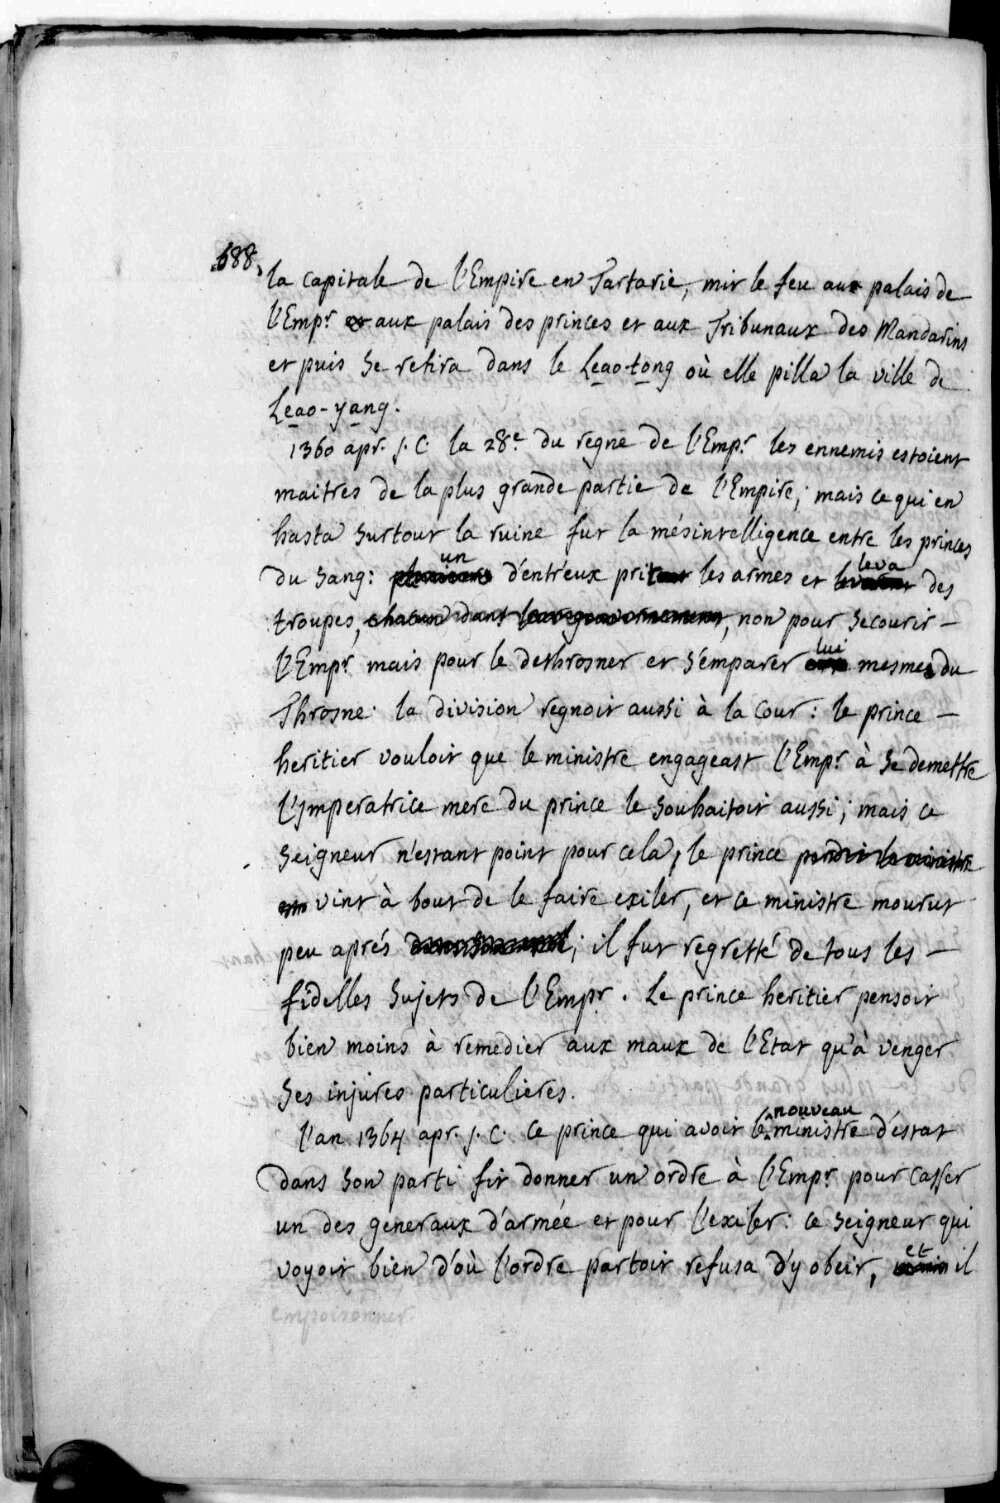 688.
la capitale de l'Empire en Tartarie, mit le feu aux palais de
l'Empr. et aux palais des princes et aux Tribunaux des Mandarins
et puis se retira dans le Leao-tong où elle pilla la ville de
Leao-yang.
1360 apr. J. C. la 28e. du regne de l'Empr. les ennemis estoient
maitres de la plus grande partie de l'Empire; mais ce qui en
hasta surtout la ruine fut la mésintelligence entre les princes
du sang: un d'entr'eux prit les armes et leva des
troupes, non pour secourir –
l'Empr. mais pour le dethrosner et s'emparer lui mesme du
Throsne. la division regnoit aussi à la cour: le prince –
heritier vouloit que le ministre engageast l'Empr. à se demettre
l'Imperatrice mere du prince le souhaitoit aussi; mais ce
seigneur n'estant point pour cela, le prince
vint à bout de le faire exiler, et ce ministre mourut
peu aprés; il fut regretté de tous les –
fidelles sujets de l'Empr. Le prince heritier pensoit
bien moins à remedier aux maux de l'Etat qu'à venger
ses injures particulieres.
l'an 1364 apr. J. C. ce prince qui avoit le nouveau ministre d'estat
dans son parti fit donner un ordre à l'Empr. pour casser
un des generaux d'armée et pour l'exiler: ce seigneur qui
voyoit bien d'où l'ordre partoit refusa d'y obeir, et il
empoisonner.